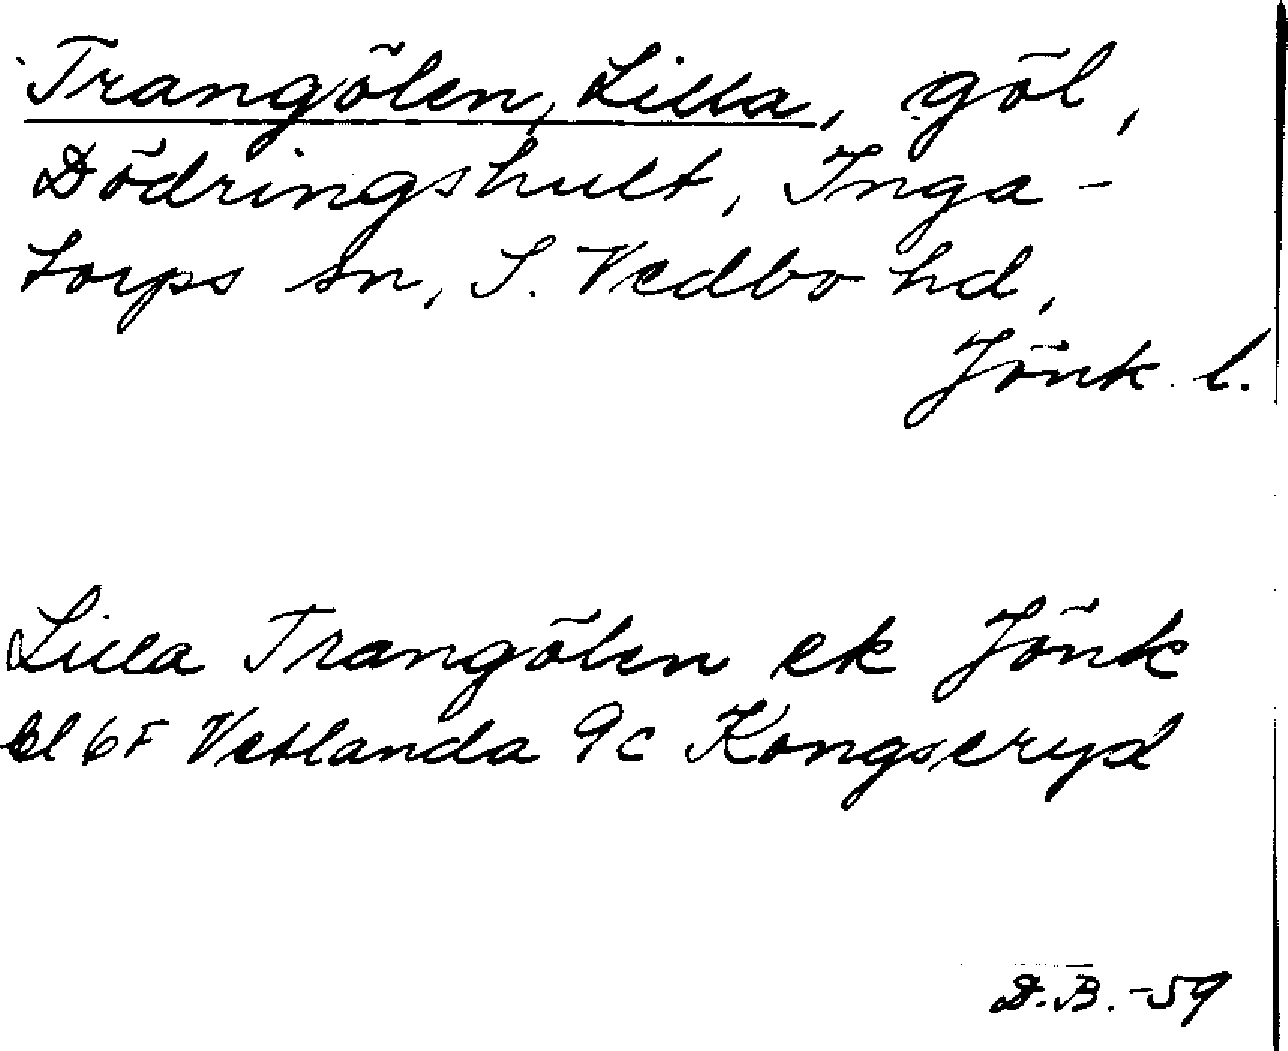 Trangölen, Lilla, göl,
Dödringshult, Inga-
torps sn, S. Vedbo hd,
Jönk. l.
Lilla Trangölen ek Jönk
bl 6F Vetlanda 9c Kongseryd
D.B. -59